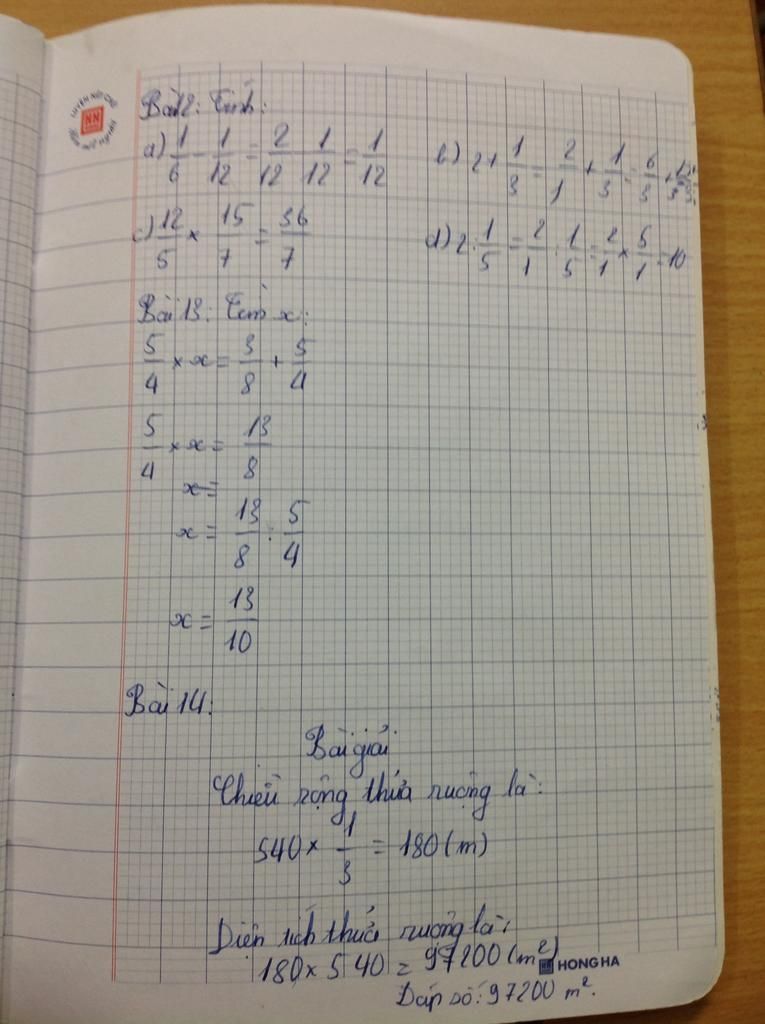 Bài 12: Tính:
a) 1/6 - 1/12 = 2/12 - 1/12 = 1/12
b) 2 + 1/3 = 2/1 + 1/3 = 6/3 +
c) 12/5 × 15/7 = 36/7
d) 2 : 1/5 = 2/1 : 1/5 = 2/1 × 5/1 = 10
Bài 13: Tìm x:
5/4 × x = 3/8 + 5/4
5/4 × x = 13/8
x =
x = 13/8 : 5/4
x = 13/10
Bài 14:
Bài giải
Chiều rộng thửa ruộng là:
540 × 1/3 = 180 (m)
Diện tích thửa ruộng là:
180 × 540 = 97200 (m²)
HONG HA
Đáp số: 97200 m².